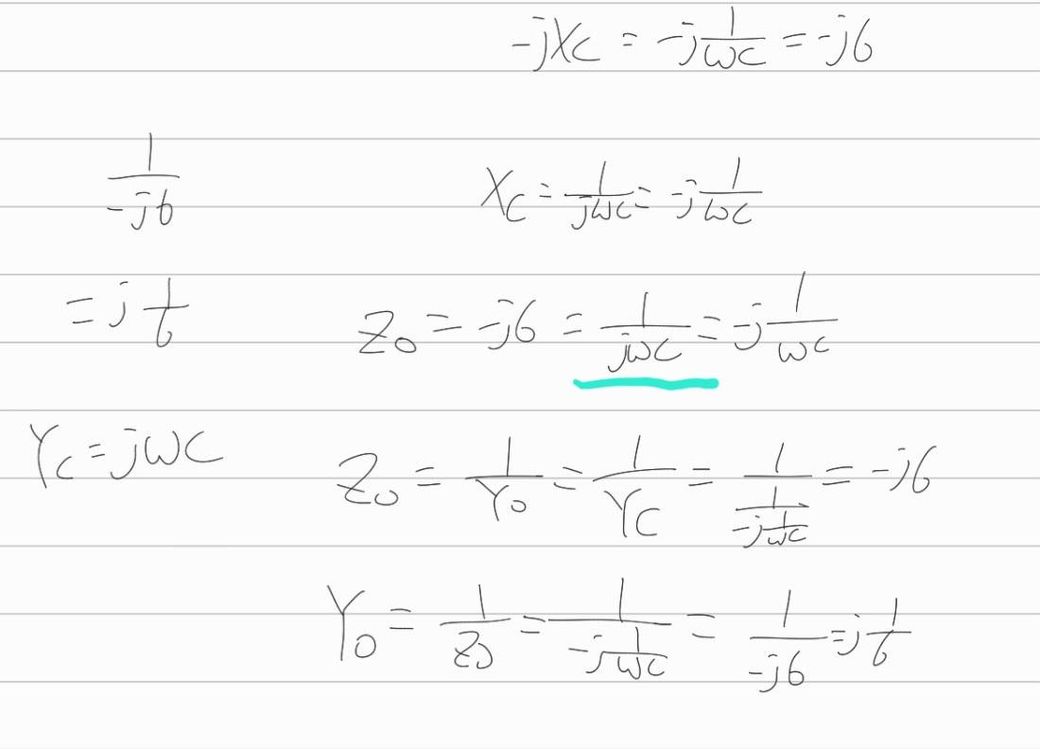 -jXc = -j 1/ωC = -j6
1/-j6
Xc = 1/jωC = -j 1/ωC
= j 1/6
Z0 = -j6 = 1/jωC = -j 1/ωC
Yc = jωC
Z0 = 1/Y0 = 1/Yc = 1/(1/(-j 1/ωC)) = -j6
Y0 = 1/Z0 = 1/(-j 1/ωC) = 1/-j6 = j 1/6